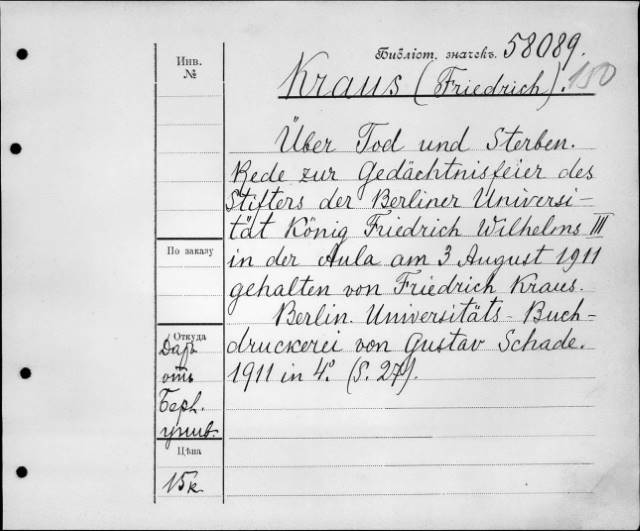 Инв.
№
Библіот. значекъ. 58089.
Kraus (Friedrich). 150
Über Tod und Sterben.
Rede zur Gedächtnisfeier des
Stifters der Berliner Universi-
tät König Friedrich Wilhelms III
in der Aula am 3 August 1911
gehalten von Friedrich Kraus.
Berlin. Universitäts-Buch-
druckerei von Gustav Schade.
1911 in 4º. (S. 27).
По заказу
Откуда
Даръ
отъ
Берл.
унив.
Цѣна
15к